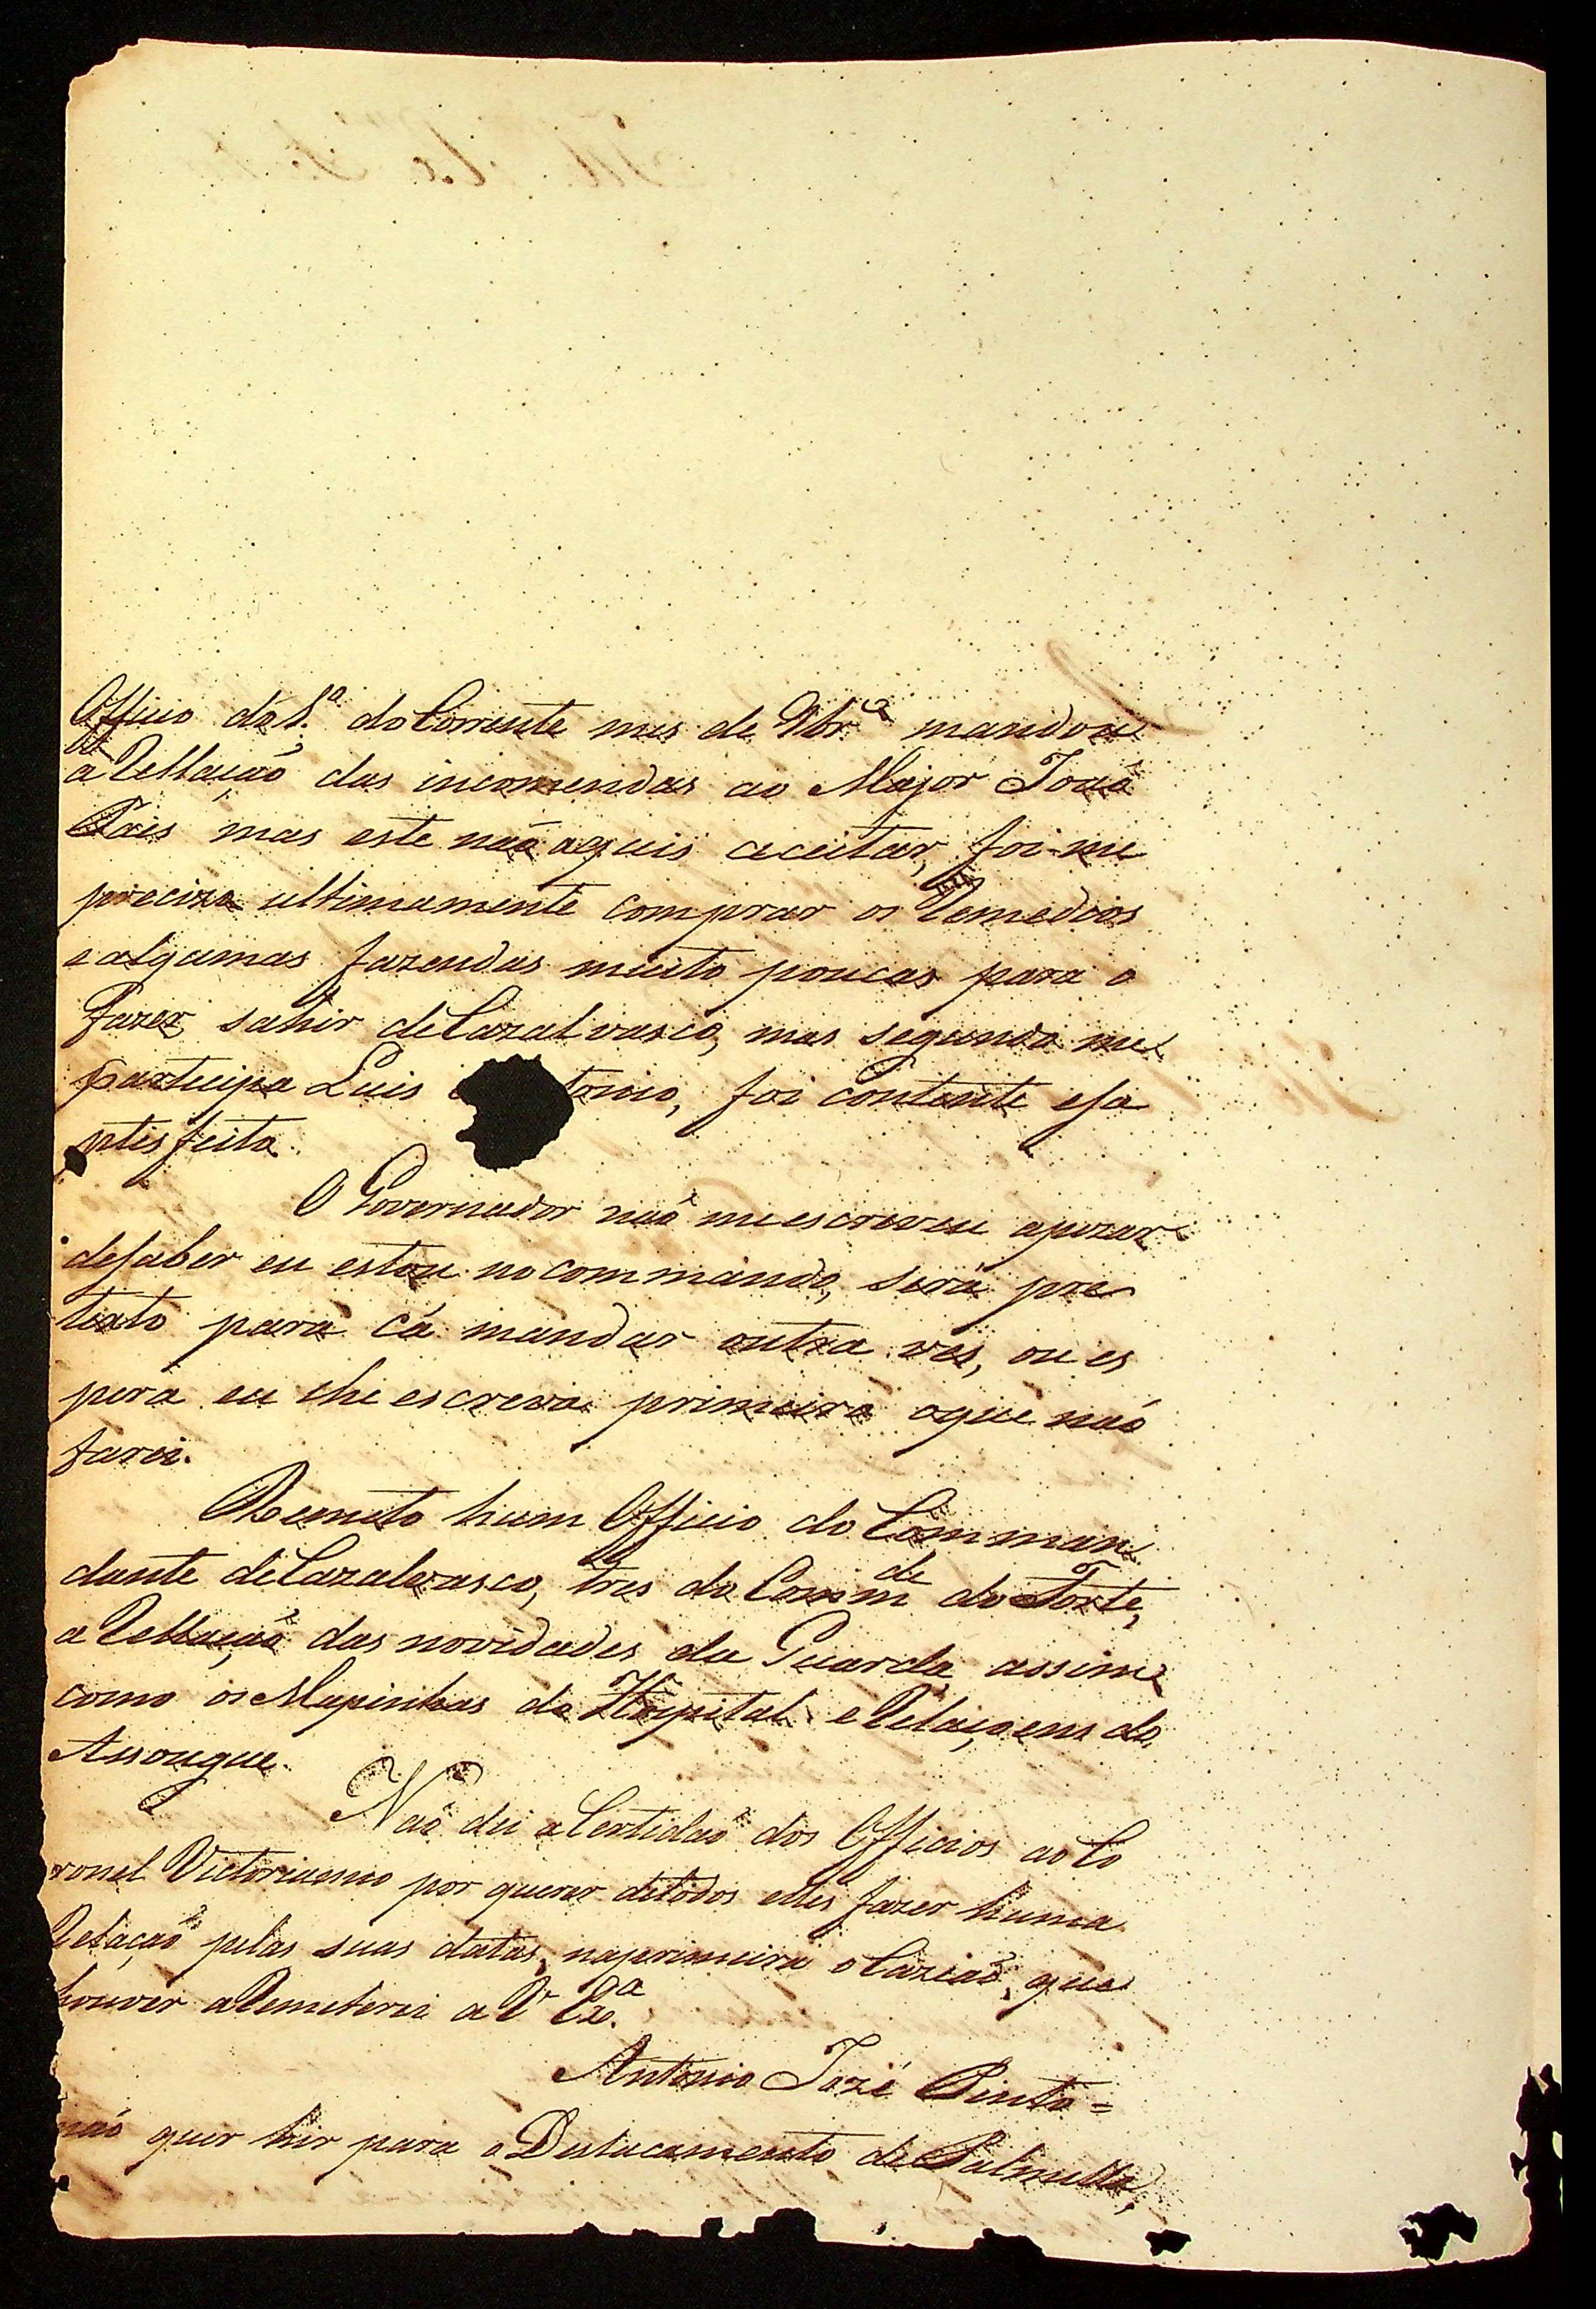 Officio do 1.º do Corrente mes de 9br.º mandou
a Rellação das incomendas ao Major Joaõ
Pais mas este naõ aquis aceitar, foi-me
precizo ultimamente comprar os Remedios
e algumas fazendas muito poucas para o
fazer sahir de Cazalvasco, mas segundo me
participa Luis tonio, foi contente esa
tisfeito.
O Governador naõ me escreveu apezar
desaber eu estou no commando, será pre
texto para cá mandar outra ves, ou es
pera eu lhe escreva primeiro oque naõ
farei.
Remeto hum Officio do Comman
dante de Cazalvasco, tres do Comm.de do Forte,
a Rellação das novidades da Guarda, assim
como os Mapinhas do Hospital e Relaçoens do
Assougue.
Naõ dei a Certidaõ dos Officios ao Co
ronel Victoriano por querer detodos elles fazer huma
Relaçaõ pelas suas datas, naprimeira ocaziaõ, que
houver a Remeterei a V Ex.ª
Antonio Jozé Pinto =
naõ quer hir para o Destacamento de Palmella,